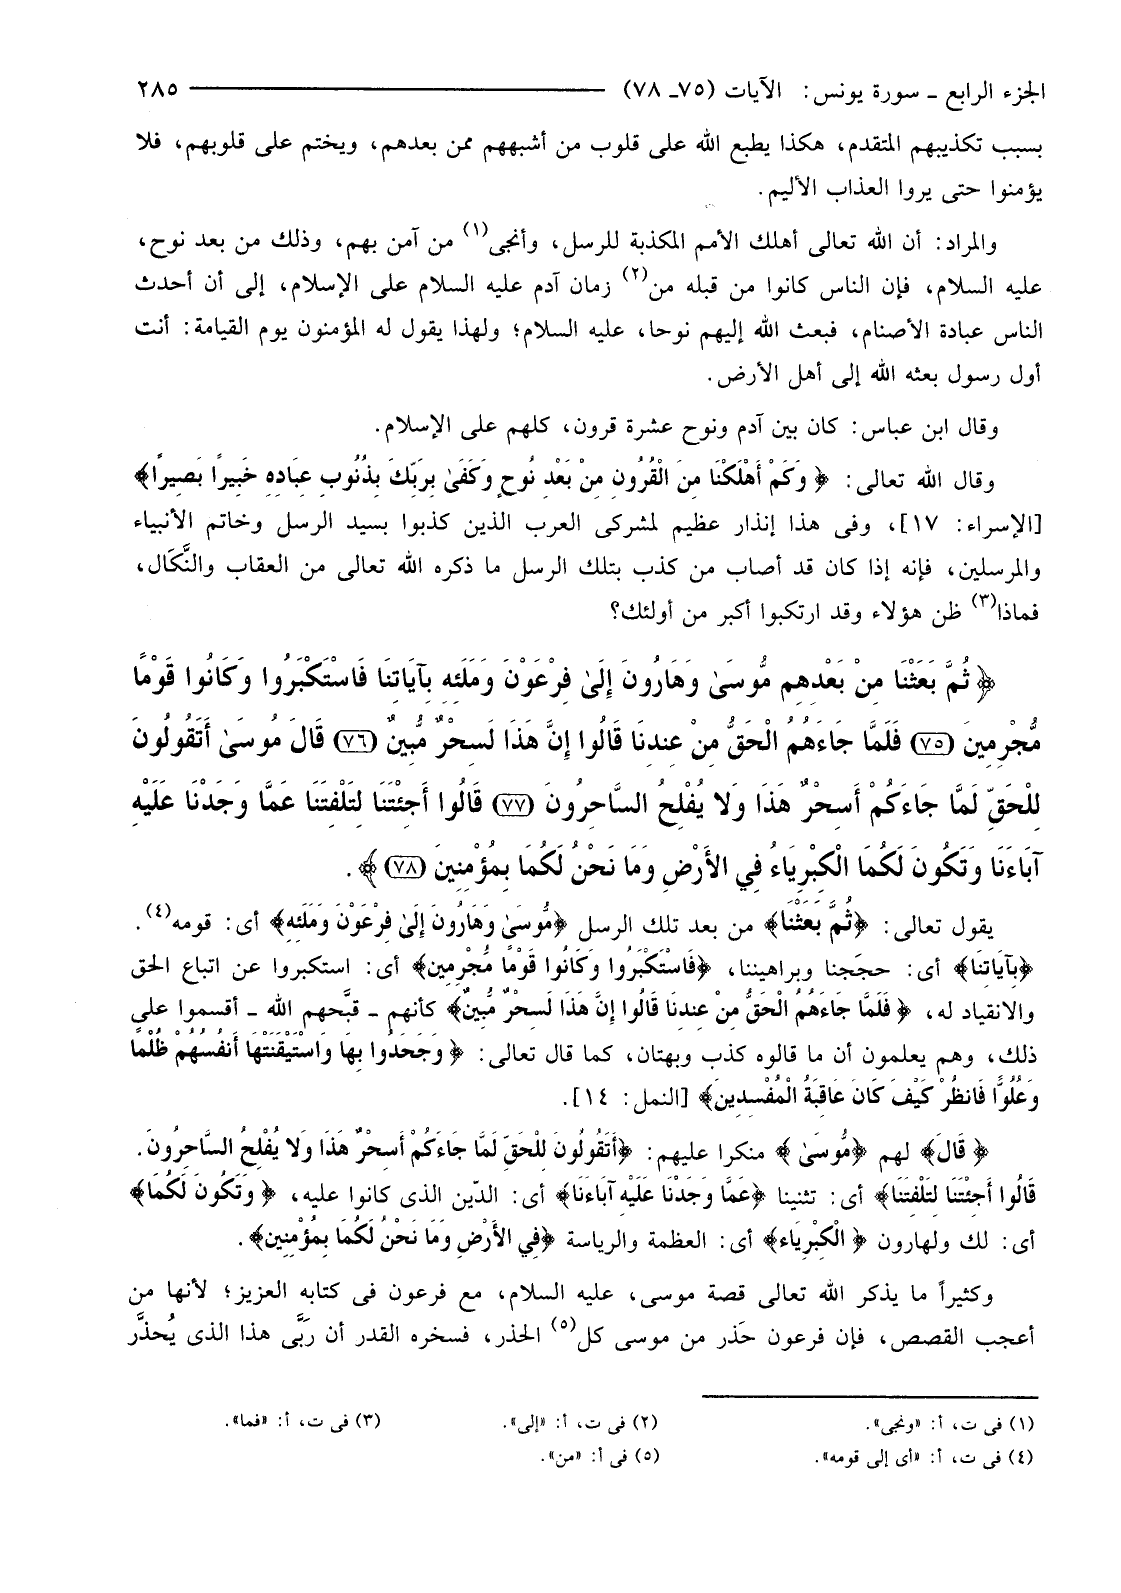 الجزء الرابع ـ سورة يونس: الآيات (٧٥ـ ٧٨) ٢٨٥
بسبب تكذيبهم المتقدم، هكذا يطبع الله على قلوب من أشبههم ممن بعدهم، ويختم على قلوبهم، فلا
يؤمنوا حتى يروا العذاب الأليم.
والمراد: أن الله تعالى أهلك الأمم المكذبة للرسل، وأنجى(١) من آمن بهم، وذلك من بعد نوح،
عليه السلام، فإن الناس كانوا من قبله من(٢) زمان آدم عليه السلام على الإسلام، إلى أن أحدث
الناس عبادة الأصنام، فبعث الله إليهم نوحا، عليه السلام؛ ولهذا يقول له المؤمنون يوم القيامة: أنت
أول رسول بعثه الله إلى أهل الأرض.
وقال ابن عباس: كان بين آدم ونوح عشرة قرون، كلهم على الإسلام.
وقال الله تعالى: ﴿ وَكَمْ أَهْلَكْنَا مِنَ الْقُرُونِ مِنْ بَعْدِ نُوحٍ وَكَفَىٰ بِرَبِّكَ بِذُنُوبِ عِبَادِهِ خَبِيرًا بَصِيرًا﴾
[الإسراء: ١٧]، وفى هذا إنذار عظيم لمشركى العرب الذين كذبوا بسيد الرسل وخاتم الأنبياء
والمرسلين، فإنه إذا كان قد أصاب من كذب بتلك الرسل ما ذكره الله تعالى من العقاب والنَّكَال،
فماذا(٣) ظن هؤلاء وقد ارتكبوا أكبر من أولئك؟
﴿ ثُمَّ بَعَثْنَا مِنْ بَعْدِهِم مُّوسَىٰ وَهَارُونَ إِلَىٰ فِرْعَوْنَ وَمَلَئِهِ بِآيَاتِنَا فَاسْتَكْبَرُوا وَكَانُوا قَوْمًا
مُّجْرِمِينَ (٧٥) فَلَمَّا جَاءَهُمُ الْحَقُّ مِنْ عِندِنَا قَالُوا إِنَّ هَذَا لَسِحْرٌ مُّبِينٌ (٧٦) قَالَ مُوسَىٰ أَتَقُولُونَ
لِلْحَقِّ لَمَّا جَاءَكُمْ أَسِحْرٌ هَذَا وَلا يُفْلِحُ السَّاحِرُونَ (٧٧) قَالُوا أَجِئْتَنَا لِتَلْفِتَنَا عَمَّا وَجَدْنَا عَلَيْهِ
آبَاءَنَا وَتَكُونَ لَكُمَا الْكِبْرِيَاءُ فِي الأَرْضِ وَمَا نَحْنُ لَكُمَا بِمُؤْمِنِينَ (٧٨) ﴾ .
يقول تعالى: ﴿ثُمَّ بَعَثْنَا﴾ من بعد تلك الرسل ﴿مُّوسَىٰ وَهَارُونَ إِلَىٰ فِرْعَوْنَ وَمَلَئِهِ﴾ أى: قومه(٤).
﴿بِآيَاتِنَا﴾ أى: حجَجنا وبراهيننا، ﴿فَاسْتَكْبَرُوا وَكَانُوا قَوْمًا مُّجْرِمِين﴾ أى: استكبروا عن اتباع الحق
والانقياد له، ﴿ فَلَمَّا جَاءَهُمُ الْحَقُّ مِنْ عِندِنَا قَالُوا إِنَّ هَذَا لَسِحْرٌ مُّبِينٌ﴾ كأنهم ـ قبَّحهم الله ـ أقسموا على
ذلك، وهم يعلمون أن ما قالوه كذب وبهتان، كما قال تعالى: ﴿ وَجَحَدُوا بِهَا وَاسْتَيْقَنَتْهَا أَنفُسُهُمْ ظُلْمًا
وَعُلُوًّا فَانظُرْ كَيْفَ كَانَ عَاقِبَةُ الْمُفْسِدِينَ﴾ [النمل: ١٤].
﴿ قَالَ﴾ لهم ﴿مُّوسَىٰ ﴾ منكرا عليهم: ﴿أَتَقُولُونَ لِلْحَقِّ لَمَّا جَاءَكُمْ أَسِحْرٌ هَذَا وَلا يُفْلِحُ السَّاحِرُونَ.
قَالُوا أَجِئْتَنَا لِتَلْفِتَنَا﴾ أى: تثنينا ﴿عَمَّا وَجَدْنَا عَلَيْهِ آبَاءَنَا﴾ أى: الدّين الذى كانوا عليه، ﴿ وَتَكُونَ لَكُمَا﴾
أى: لك ولهارون ﴿ الْكِبْرِيَاء﴾ أى: العظمة والرياسة ﴿فِي الأَرْضِ وَمَا نَحْنُ لَكُمَا بِمُؤْمِنِين﴾.
وكثيراً ما يذكر الله تعالى قصة موسى، عليه السلام، مع فرعون فى كتابه العزيز؛ لأنها من
أعجب القصص، فإن فرعون حَذر من موسى كل(٥) الحذر، فسخره القدر أن رَبَّى هذا الذى يُحذَّر
(١) فى ت، أ: «ونجى». (٢) فى ت، أ: «إلى». (٣) فى ت، أ: «فما».
(٤) فى ت، أ: «أى إلى قومه». (٥) فى أ: «من».